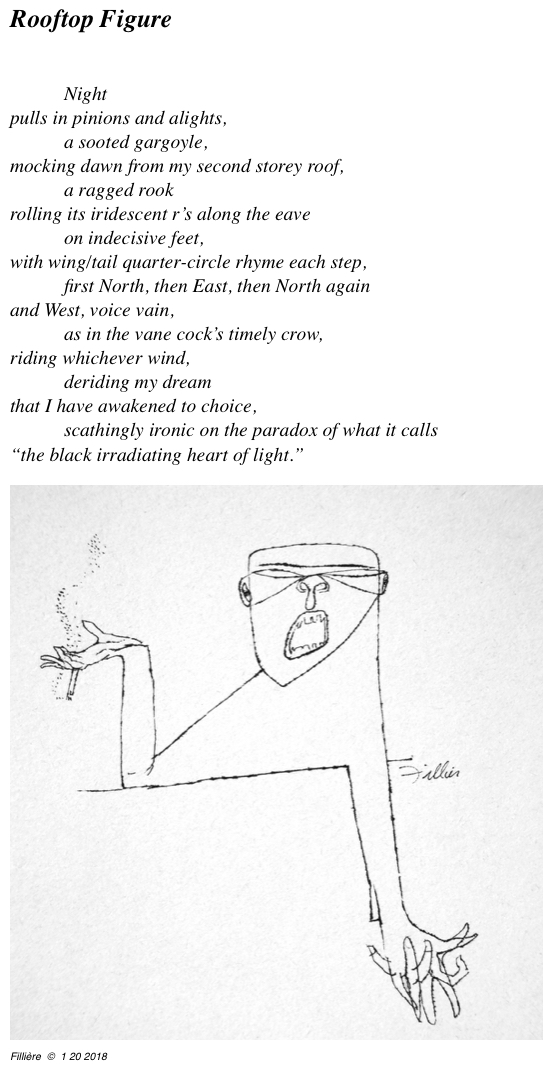 Rooftop Figure
Night
pulls in pinions and alights,
a sooted gargoyle,
mocking dawn from my second storey roof,
a ragged rook
rolling its iridescent r’s along the eave
on indecisive feet,
with wing/tail quarter-circle rhyme each step,
first North, then East, then North again
and West, voice vain,
as in the vane cock’s timely crow,
riding whichever wind,
deriding my dream
that I have awakened to choice,
scathingly ironic on the paradox of what it calls
“the black irradiating heart of light.”
Fillière © 1 20 2018